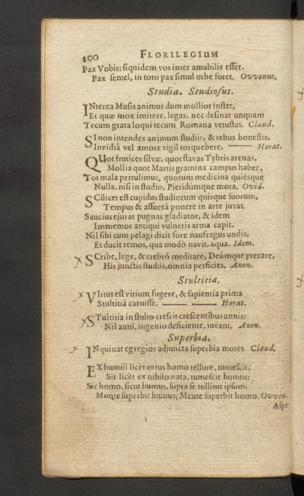 100 FLORILEGIUM
Pax Vobis; siquidem vos inter amabilis esset,
Pax semel, in toto pax simul orbe foret. Owenus.
Studia. Studiosus.
INterea Musis animus dum mollior instet,
Et quæ mox imitere, legas, nec desinat unquam
Tecum grata loqui tecum Romana vetustas. Claud.
SI non intendes animum studiis, & rebus honestis,
Invidiâ vel amore vigil torquebere. —— Horat.
QUot frutices silvæ, quot flavas Tybris arenas,
Mollia quot Martis gramina campus habet,
Tot mala pertulimus, quorum medicina quiesque
Nulla, nisi in studio, Pieridúmque mora. Ovid.
SCilicet est cupidus studiorum quisque suorum,
Tempus & assuetâ ponere in arte juvat.
Saucius ejurat pugnas gladiator, & idem
Immemor antiqui vulneris arma capit.
Nil sibi cum pelagi dicit fore naufragus undis,
Et ducit remos, qua modò navit, aqua. Idem.
SCribe, lege, & crebrò meditare, Deúmque precare,
His junctis studiis, omnia perficies. Anon.
Stultitia.
VIrtus est vitium fugere, & sapientia prima
Stultitiâ caruisse. —— —— Horat.
STultitia in stulto crescit crescentibus annis:
Nil anni, ingenio deficiente, juvant. Auon.
Superbia.
INquinat egregios adjuncta superbia mores. Claud.
EX humili licèt ortus homo tellure, tumescit;
Sit licèt ex nihilo nata, tumescit humus:
Sic homo, sicut humus, supra se tollitur ipsum:
Monte superbit humus, Mente superbit homo. Owen.
Aspe